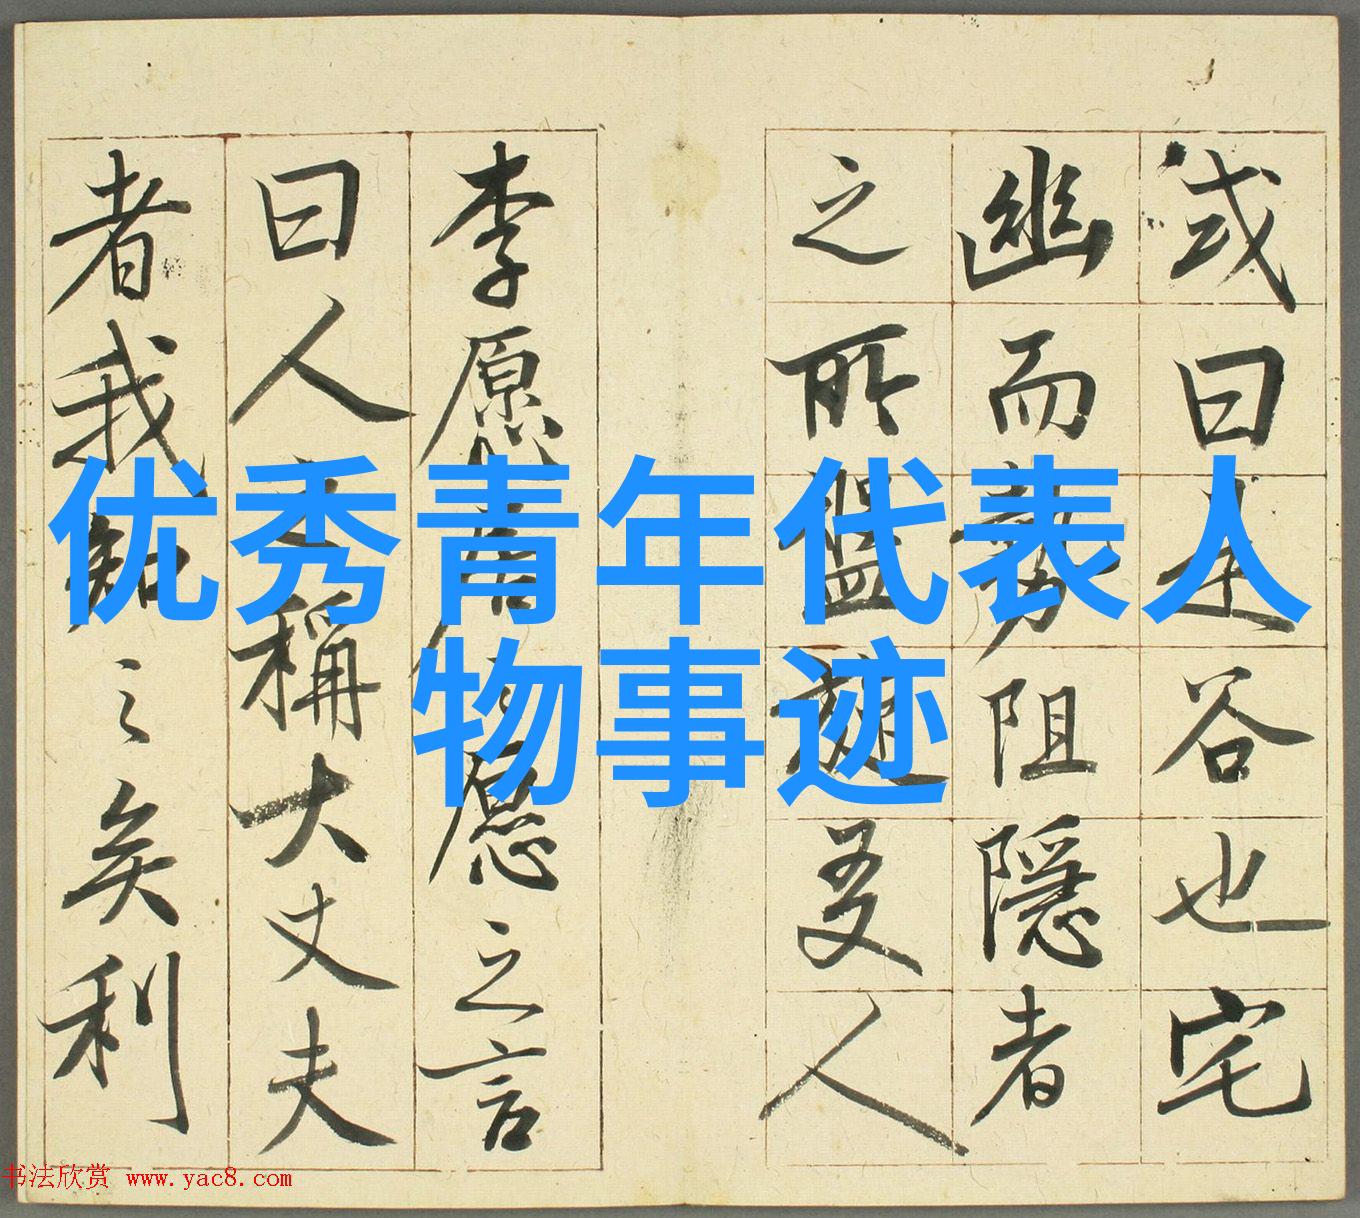 或曰是谷也宅
幽而勢阻隱者
之所盤旋友人
李愿居之愿之言
曰人之稱大丈夫
者我知之矣利
优秀青年代表人
物事迹
书法欣赏 www.yac8.com